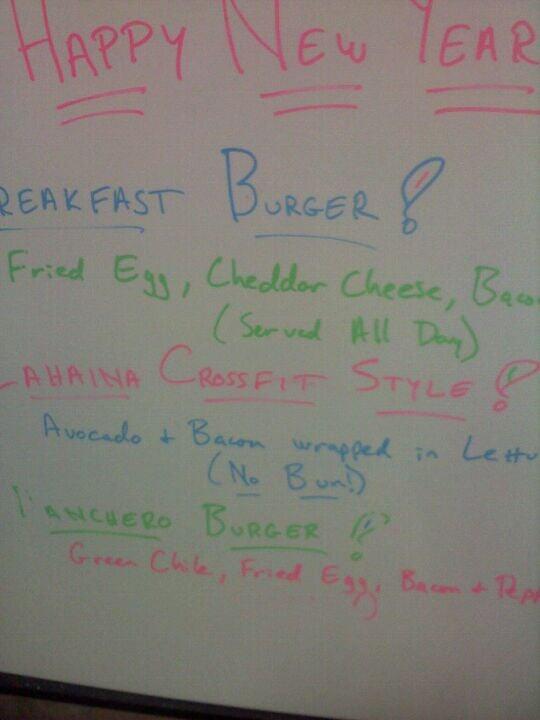 HAPPY NEW YEAR
REAKFAST BURGER!
Fried Egg, Cheddar Cheese, Baco
(Served All Day)
LAHAINA CROSSFIT STYLE!
Avocado + Bacon wrapped in Lettu
(No Bun!)
ANCHERO BURGER!
Green Chile, Fried Egg, Bacon + Pep